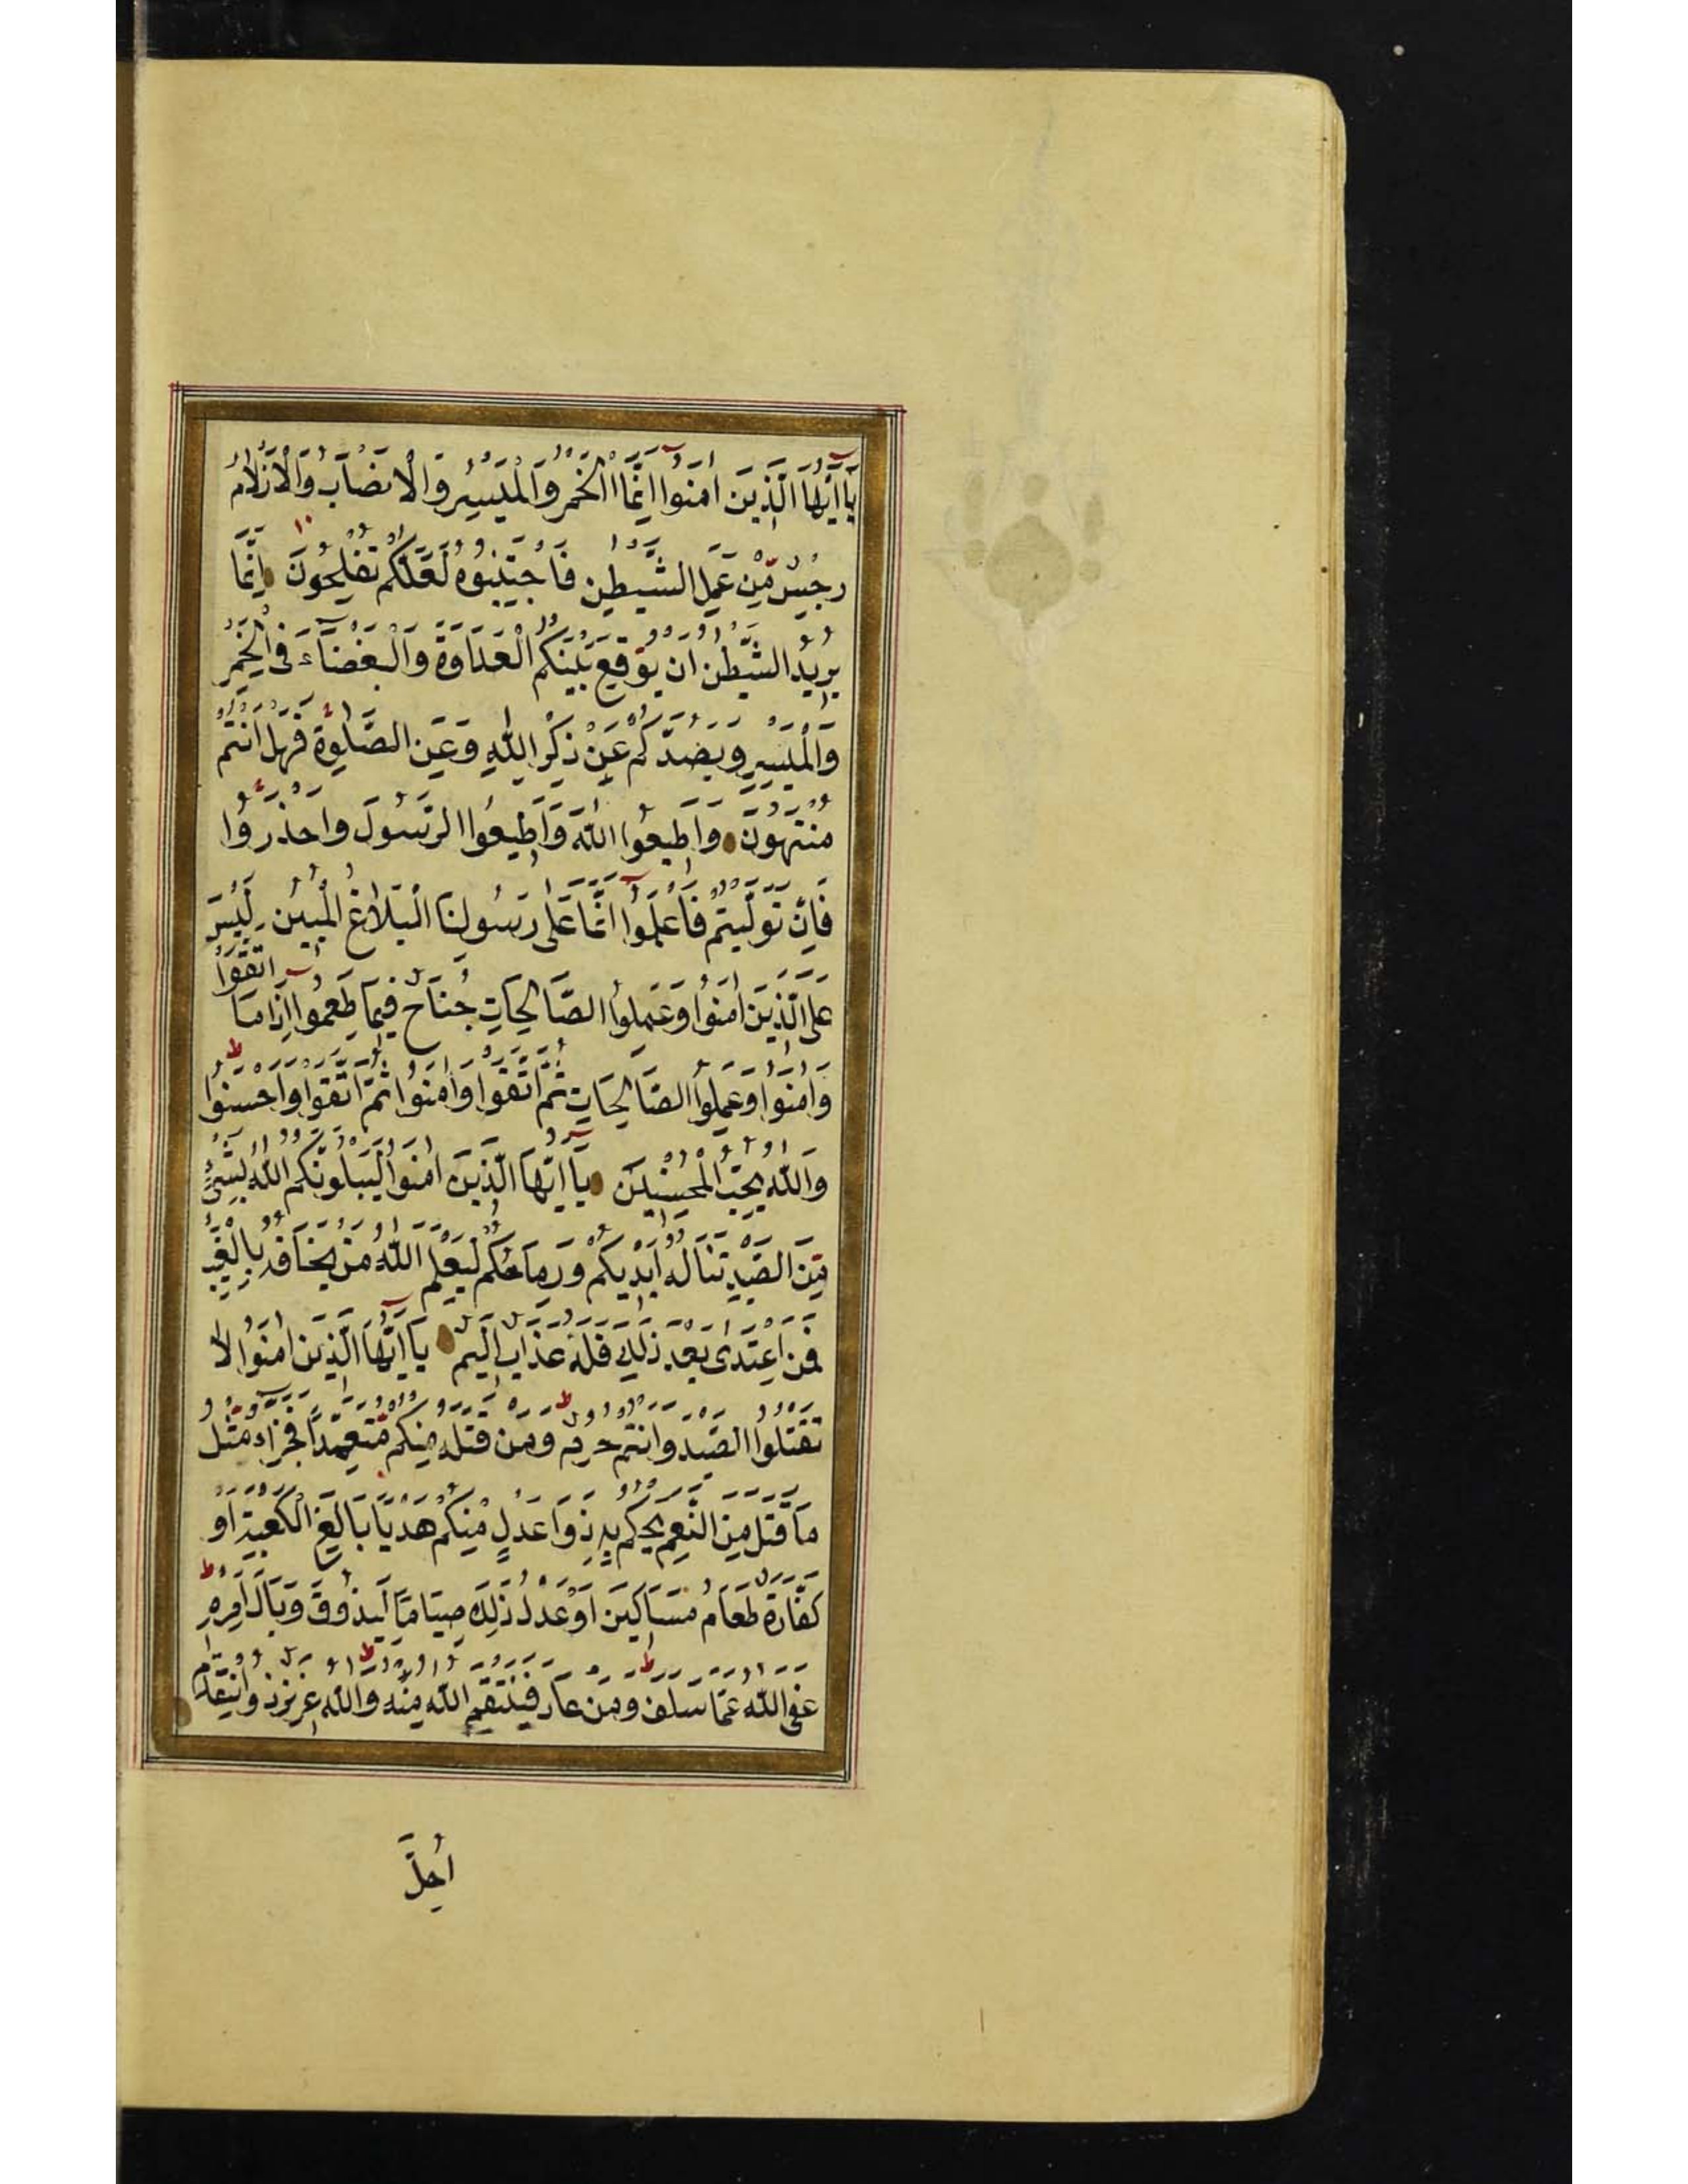 يَا أَيُّهَا الَّذِينَ اٰمَنُوا اِنَّمَا الْخَمْرُ وَالْمَيْسِرُ وَالْاَنْصَابُ وَالْاَزْلَامُ
رِجْسٌ مِّنْ عَمَلِ الشَّيْطٰنِ فَاجْتَنِبُوهُ لَعَلَّكُمْ تُفْلِحُونَ اِنَّمَا
يُرِيدُ الشَّيْطٰنُ اَنْ يُوقِعَ بَيْنَكُمُ الْعَدَاوَةَ وَالْبَغْضَآءَ فِى الْخَمْرِ
وَالْمَيْسِرِ وَيَصُدَّكُمْ عَنْ ذِكْرِ اللّٰهِ وَعَنِ الصَّلٰوةِ فَهَلْ اَنْتُمْ
مُنْتَهُونَ وَاَطِيعُوا اللّٰهَ وَاَطِيعُوا الرَّسُولَ وَاحْذَرُوا
فَاِنْ تَوَلَّيْتُمْ فَاعْلَمُوا اَنَّمَا عَلٰى رَسُولِنَا الْبَلَاغُ الْمُبِينُ لَيْسَ
عَلَى الَّذِينَ اٰمَنُوا وَعَمِلُوا الصَّالِحَاتِ جُنَاحٌ فِيمَا طَعِمُوا اِذَا مَا اتَّقَوْا
وَاٰمَنُوا وَعَمِلُوا الصَّالِحَاتِ ثُمَّ اتَّقَوْا وَاٰمَنُوا ثُمَّ اتَّقَوْا وَاَحْسَنُوا
وَاللّٰهُ يُحِبُّ الْمُحْسِنِينَ يَا اَيُّهَا الَّذِينَ اٰمَنُوا لَيَبْلُوَنَّكُمُ اللّٰهُ بِشَىْءٍ
مِّنَ الصَّيْدِ تَنَالُهُ اَيْدِيكُمْ وَرِمَاحُكُمْ لِيَعْلَمَ اللّٰهُ مَنْ يَخَافُهُ بِالْغَيْبِ
فَمَنِ اعْتَدٰى بَعْدَ ذٰلِكَ فَلَهُ عَذَابٌ اَلِيمٌ يَا اَيُّهَا الَّذِينَ اٰمَنُوا لَا
تَقْتُلُوا الصَّيْدَ وَاَنْتُمْ حُرُمٌ وَمَنْ قَتَلَهُ مِنْكُمْ مُّتَعَمِّدًا فَجَزَاءٌ مِّثْلُ
مَا قَتَلَ مِنَ النَّعَمِ يَحْكُمُ بِهِ ذَوَا عَدْلٍ مِنْكُمْ هَدْيًا بَالِغَ الْكَعْبَةِ اَوْ
كَفَّارَةٌ طَعَامُ مَسَاكِينَ اَوْ عَدْلُ ذٰلِكَ صِيَامًا لِيَذُوقَ وَبَالَ اَمْرِهِ
عَفَى اللّٰهُ عَمَّا سَلَفَ وَمَنْ عَادَ فَيَنْتَقِمُ اللّٰهُ مِنْهُ وَاللّٰهُ عَزِيزٌ ذُو انْتِقَامٍ
اُحِلَّ